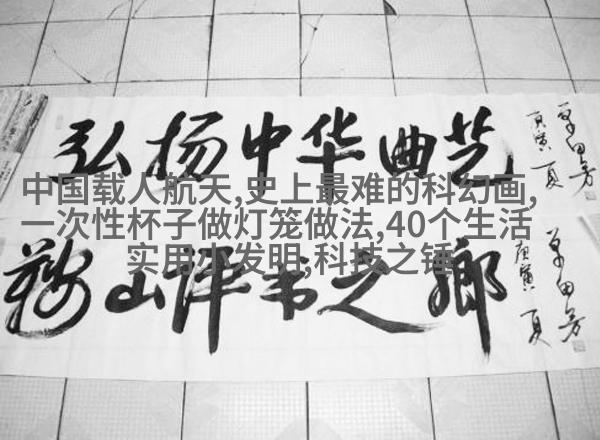 弘扬中华曲艺
庚寅夏 单田芳
中国载人航天,史上最难的科幻画,
一次性杯子做灯笼做法,40个生活
实用小发明,科技之锤
鞍山评书之乡
庚寅夏 单田芳